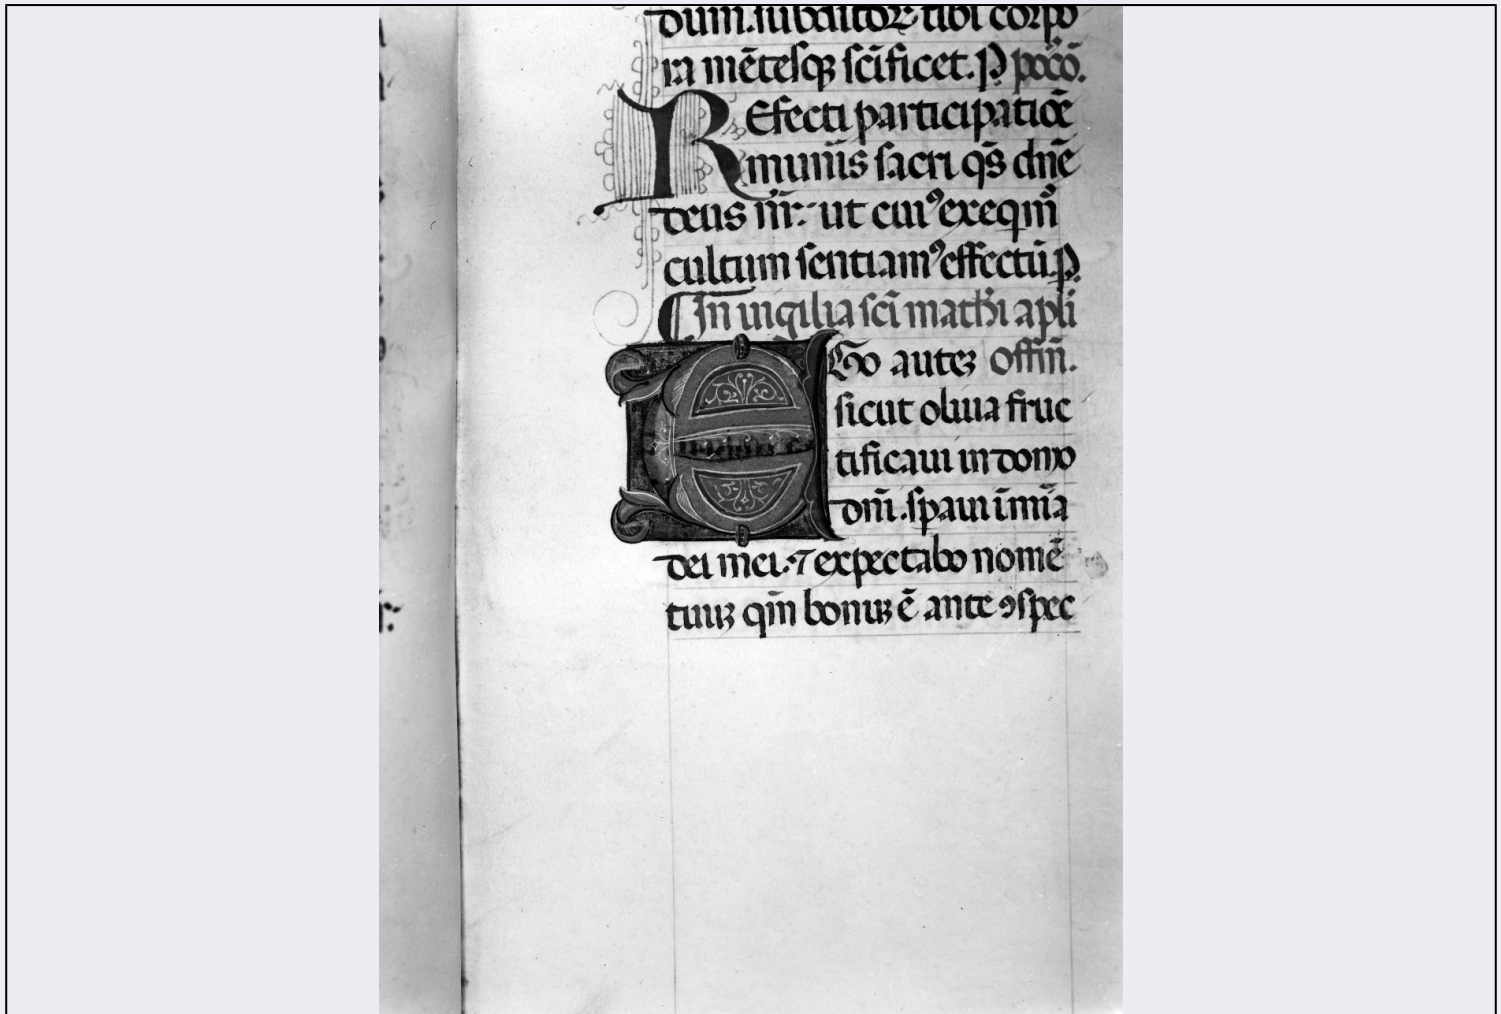 dum. subditor tibi corpo
ra mētesq; scīficet. P pocō.
REfecti participatiōe
munīs sacri qs̄ dnē
deus nr̄: ut cui9 exeqm̄
cultum sentiam9 effectū P
In uigilia scī mathī apli
EGo autez offm̄.
sicut oliua fruc
tificaui in domo
dnī. spaui ī mīa
dei mei. ⁊ expectabo nomē
tuuz qm̄ bonuz ē ante ꝯspec